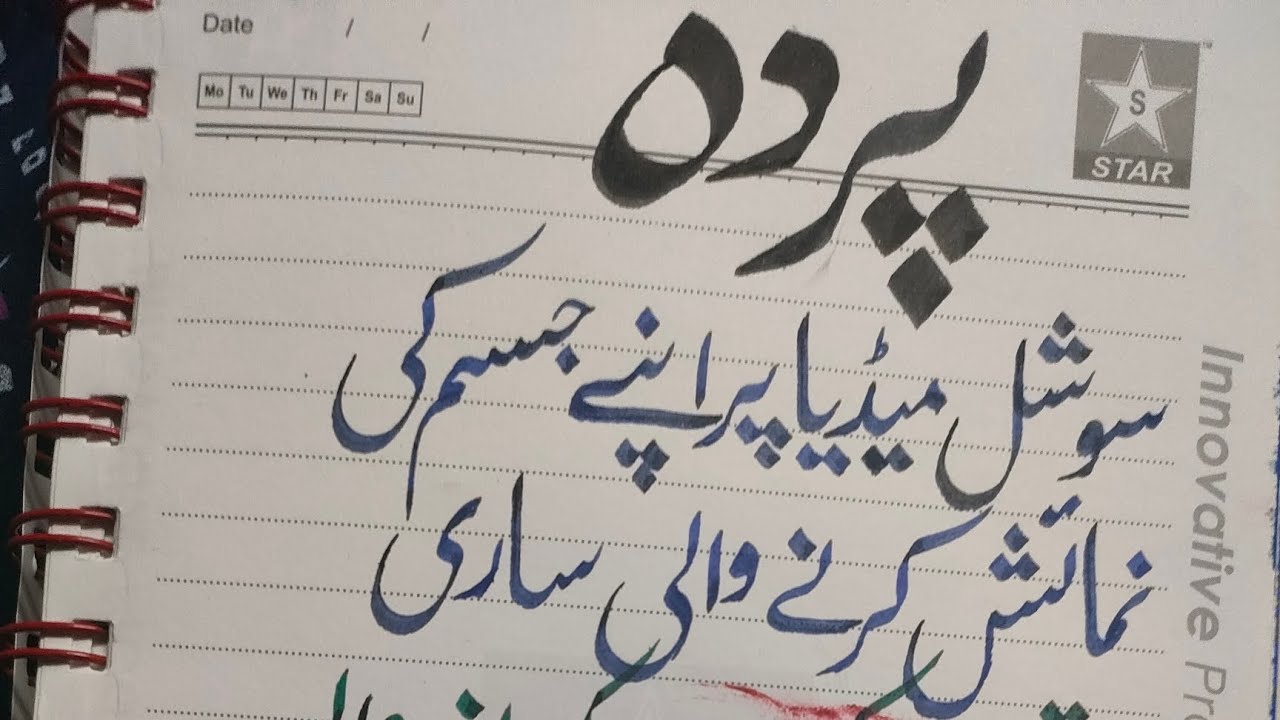 Date / /
Mo Tu We Th Fr Sa Su
S
STAR
پردہ
سوشل میڈیا پر اپنے جسم کی
نمائش کرنے والی ساری
Innovative